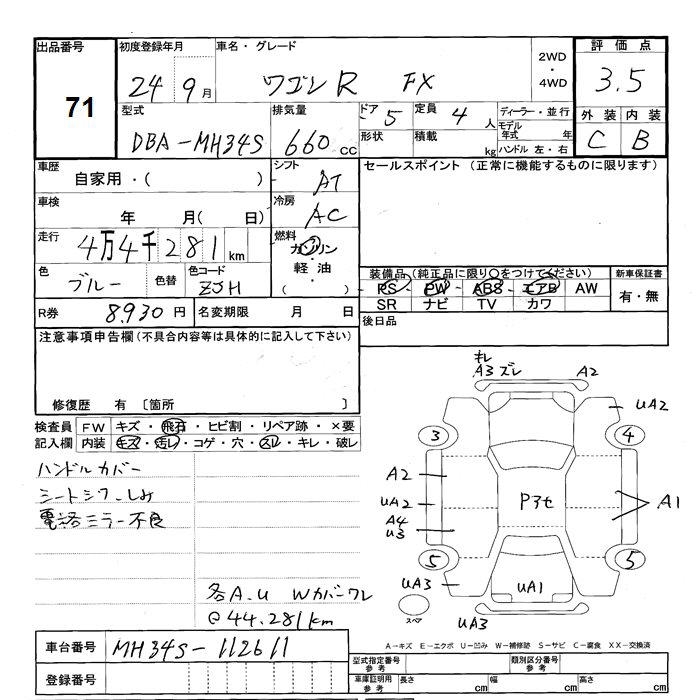 出品番号 初度登録年月 車名・グレード 2WD・4WD 評価点
71 24 9月 ワゴンR FX 3.5
型式 排気量 ドア 5 定員 4人 ディーラー・並行 外装 内装
DBA-MH34S 660cc 形状 積載 kg モデル年式 年 ハンドル 左・右 C B
車歴 自家用・( ) シフト AT セールスポイント (正常に機能するものに限ります)
車検 年 月( 日) 冷房 AC
走行 4万4千281km 燃料 ガソリン・軽油・( )
色 ブルー 色替 色コード ZJH 装備品(純正品に限り○をつけてください) 新車保証書
PS・PW・ABS・エアB AW 有・無
SR ナビ TV カワ
R券 8930円 名変期限 月 日 後日品
注意事項申告欄(不具合内容等は具体的に記入して下さい)
修復歴 有 〔箇所 〕
検査員 FW キズ・飛石・ヒビ割・リペア跡・×要
記入欄 内装 キズ・汚レ・コゲ・穴・スレ・キレ・破レ
ハンドルカバー
シートシワ_しみ
電格ミラー不良
各A.U Wカバーワレ
@44.281km
キレ
A3 ズレ A2
UA2
3 4
A2
UA2 P3セ A1
A4
U3
5 5
UA3 UA1
スペア UA3
車台番号 MH34S-112611
登録番号
A-キズ E-エクボ U-凹み W-補修跡 S-サビ C-腐食 XX-交換済
型式指定番号 参考 類別区分番号 参考
車庫証明用 参考 長さ cm 幅 cm 高さ cm